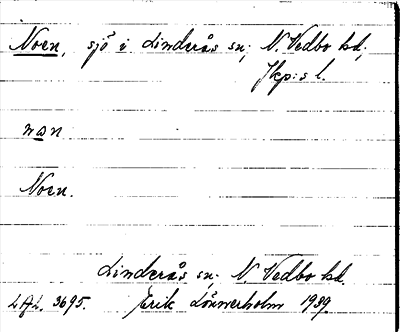 Noen, sjö i Linderås sn; N. Vedbo hd;
Jkp:s l.
non
Noen.
Linderås sn; N. Vedbo hd.
LAL. 3695. Erik Lönnerholm 1939.